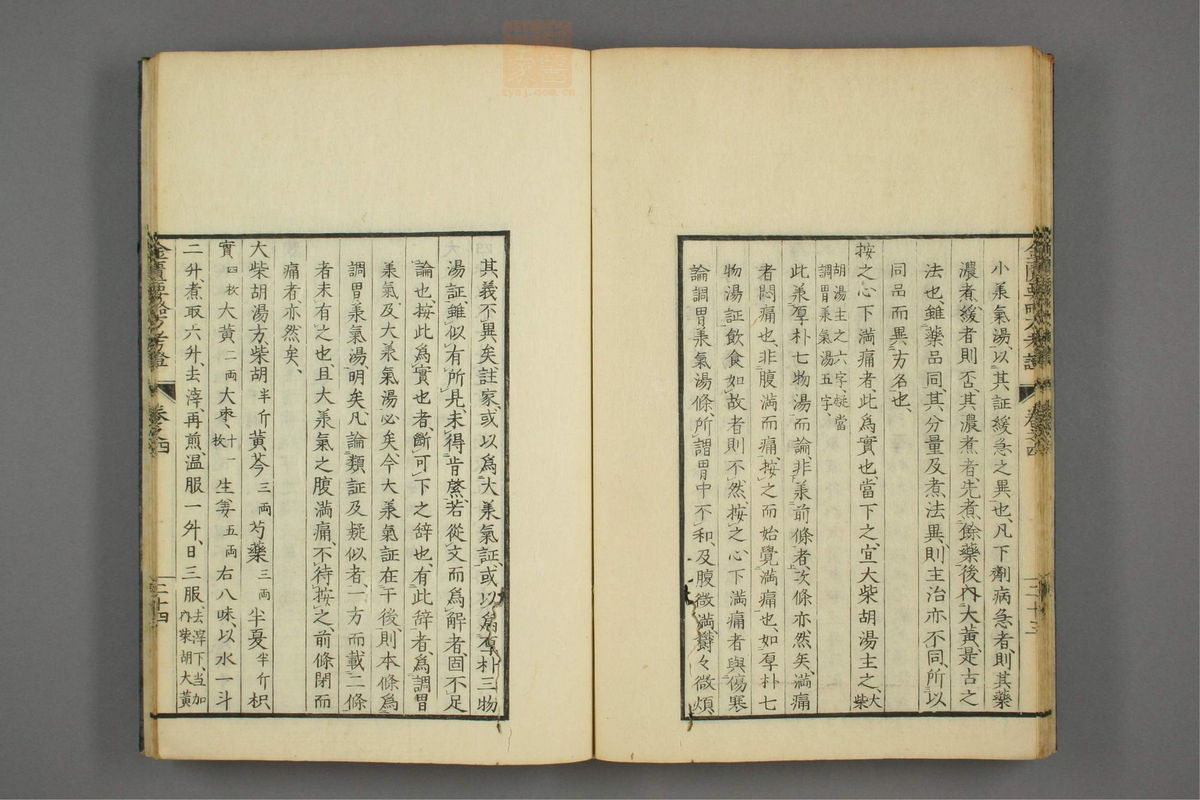 小兼氣湯以其証緩急之異也、凡下劑病急者則其藥
濃煮、緩者則否、其濃煮者、先煮餘藥後內大黃、是古之
法也、雖藥品同、其分量及煮法異、則主治亦不同、所以
同品而異方名也、
按之心下滿痛者、此為實也、當下之、宜大柴胡湯主之、大柴
胡湯主之六字疑當
調胃兼氣湯五字、
此兼厚朴七物湯而論、非兼前條者、次條亦然矣、滿痛
者悶痛也、非腹滿而痛、按之而始覺滿痛也、如厚朴七
物湯証飲食如故者則不然、按之心下滿痛者與傷寒
論調胃兼氣湯條、所謂胃中不和、及腹微滿、鬱々微煩、
卷之四
三十三
其義不異矣、註家或以為大兼氣証、或以為厚朴三物
湯証、雖似有所見、未得肯綮、若從文而為解者、固不足
論也、按此為實也者、斷可下之辭也、有此辭者、為調胃
兼氣及大兼氣湯必矣、今大兼氣証在于後、則本條為
調胃兼氣湯明矣、凡論類証及疑似者、一方而載二條
者未有之也、且大兼氣之腹滿痛、不待按之、前條閉而
痛者亦然矣、
大柴胡湯方、柴胡半斤黃芩三兩芍藥三兩半夏半斤枳
實四枚大黃二兩大棗十一枚生姜五兩右八味、以水一斗
二升、煮取六升、去滓、再煎、溫服一升、日三服、去滓下、当加
內柴胡大黃
金匱要略方考證
卷之四
三十四